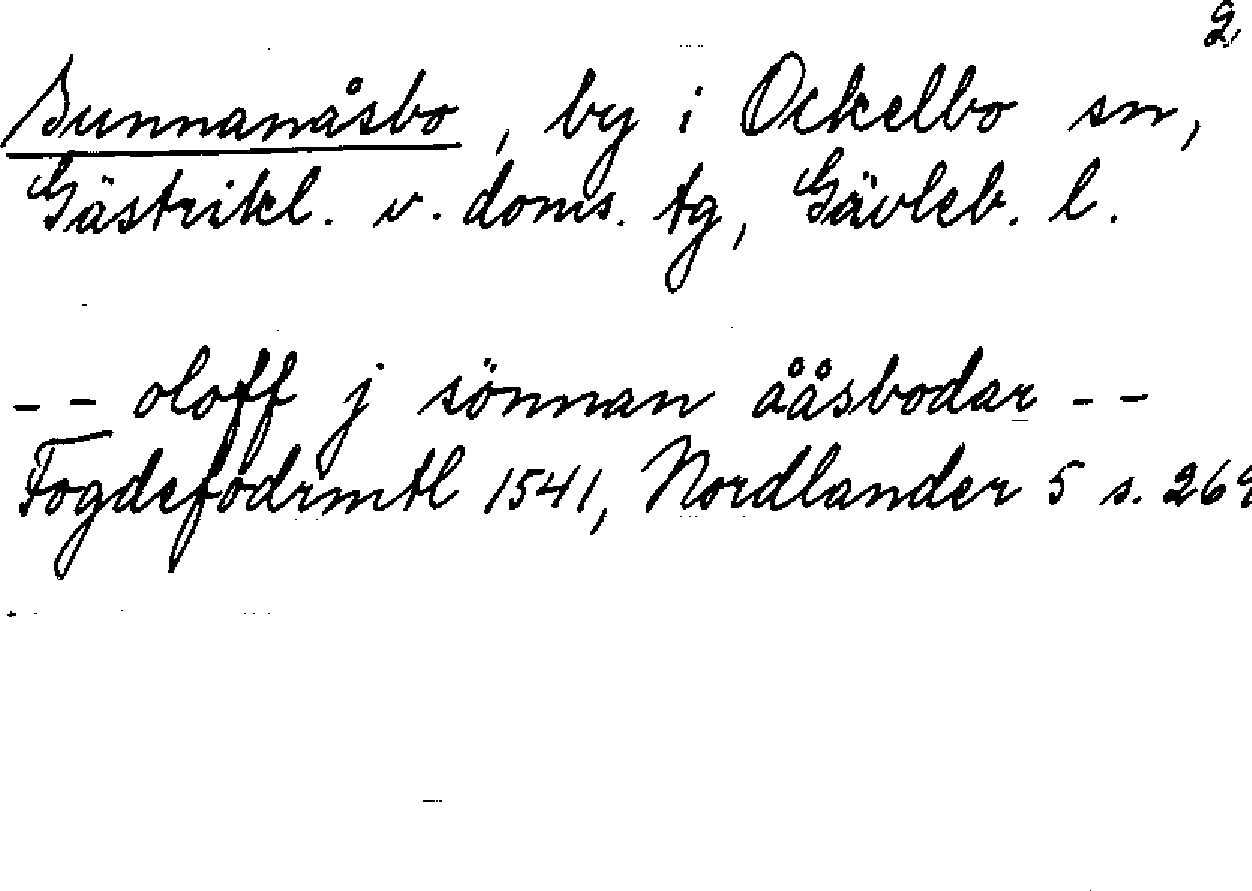 2,
Sunnanåsbo, by i Ockelbo sn,
Gästrikl. v. doms. tg, Gävleb. l.
- - oloff j sönnan ååsbodar - -
Fogdefodrmtl 1541, Nordlander 5 s. 269